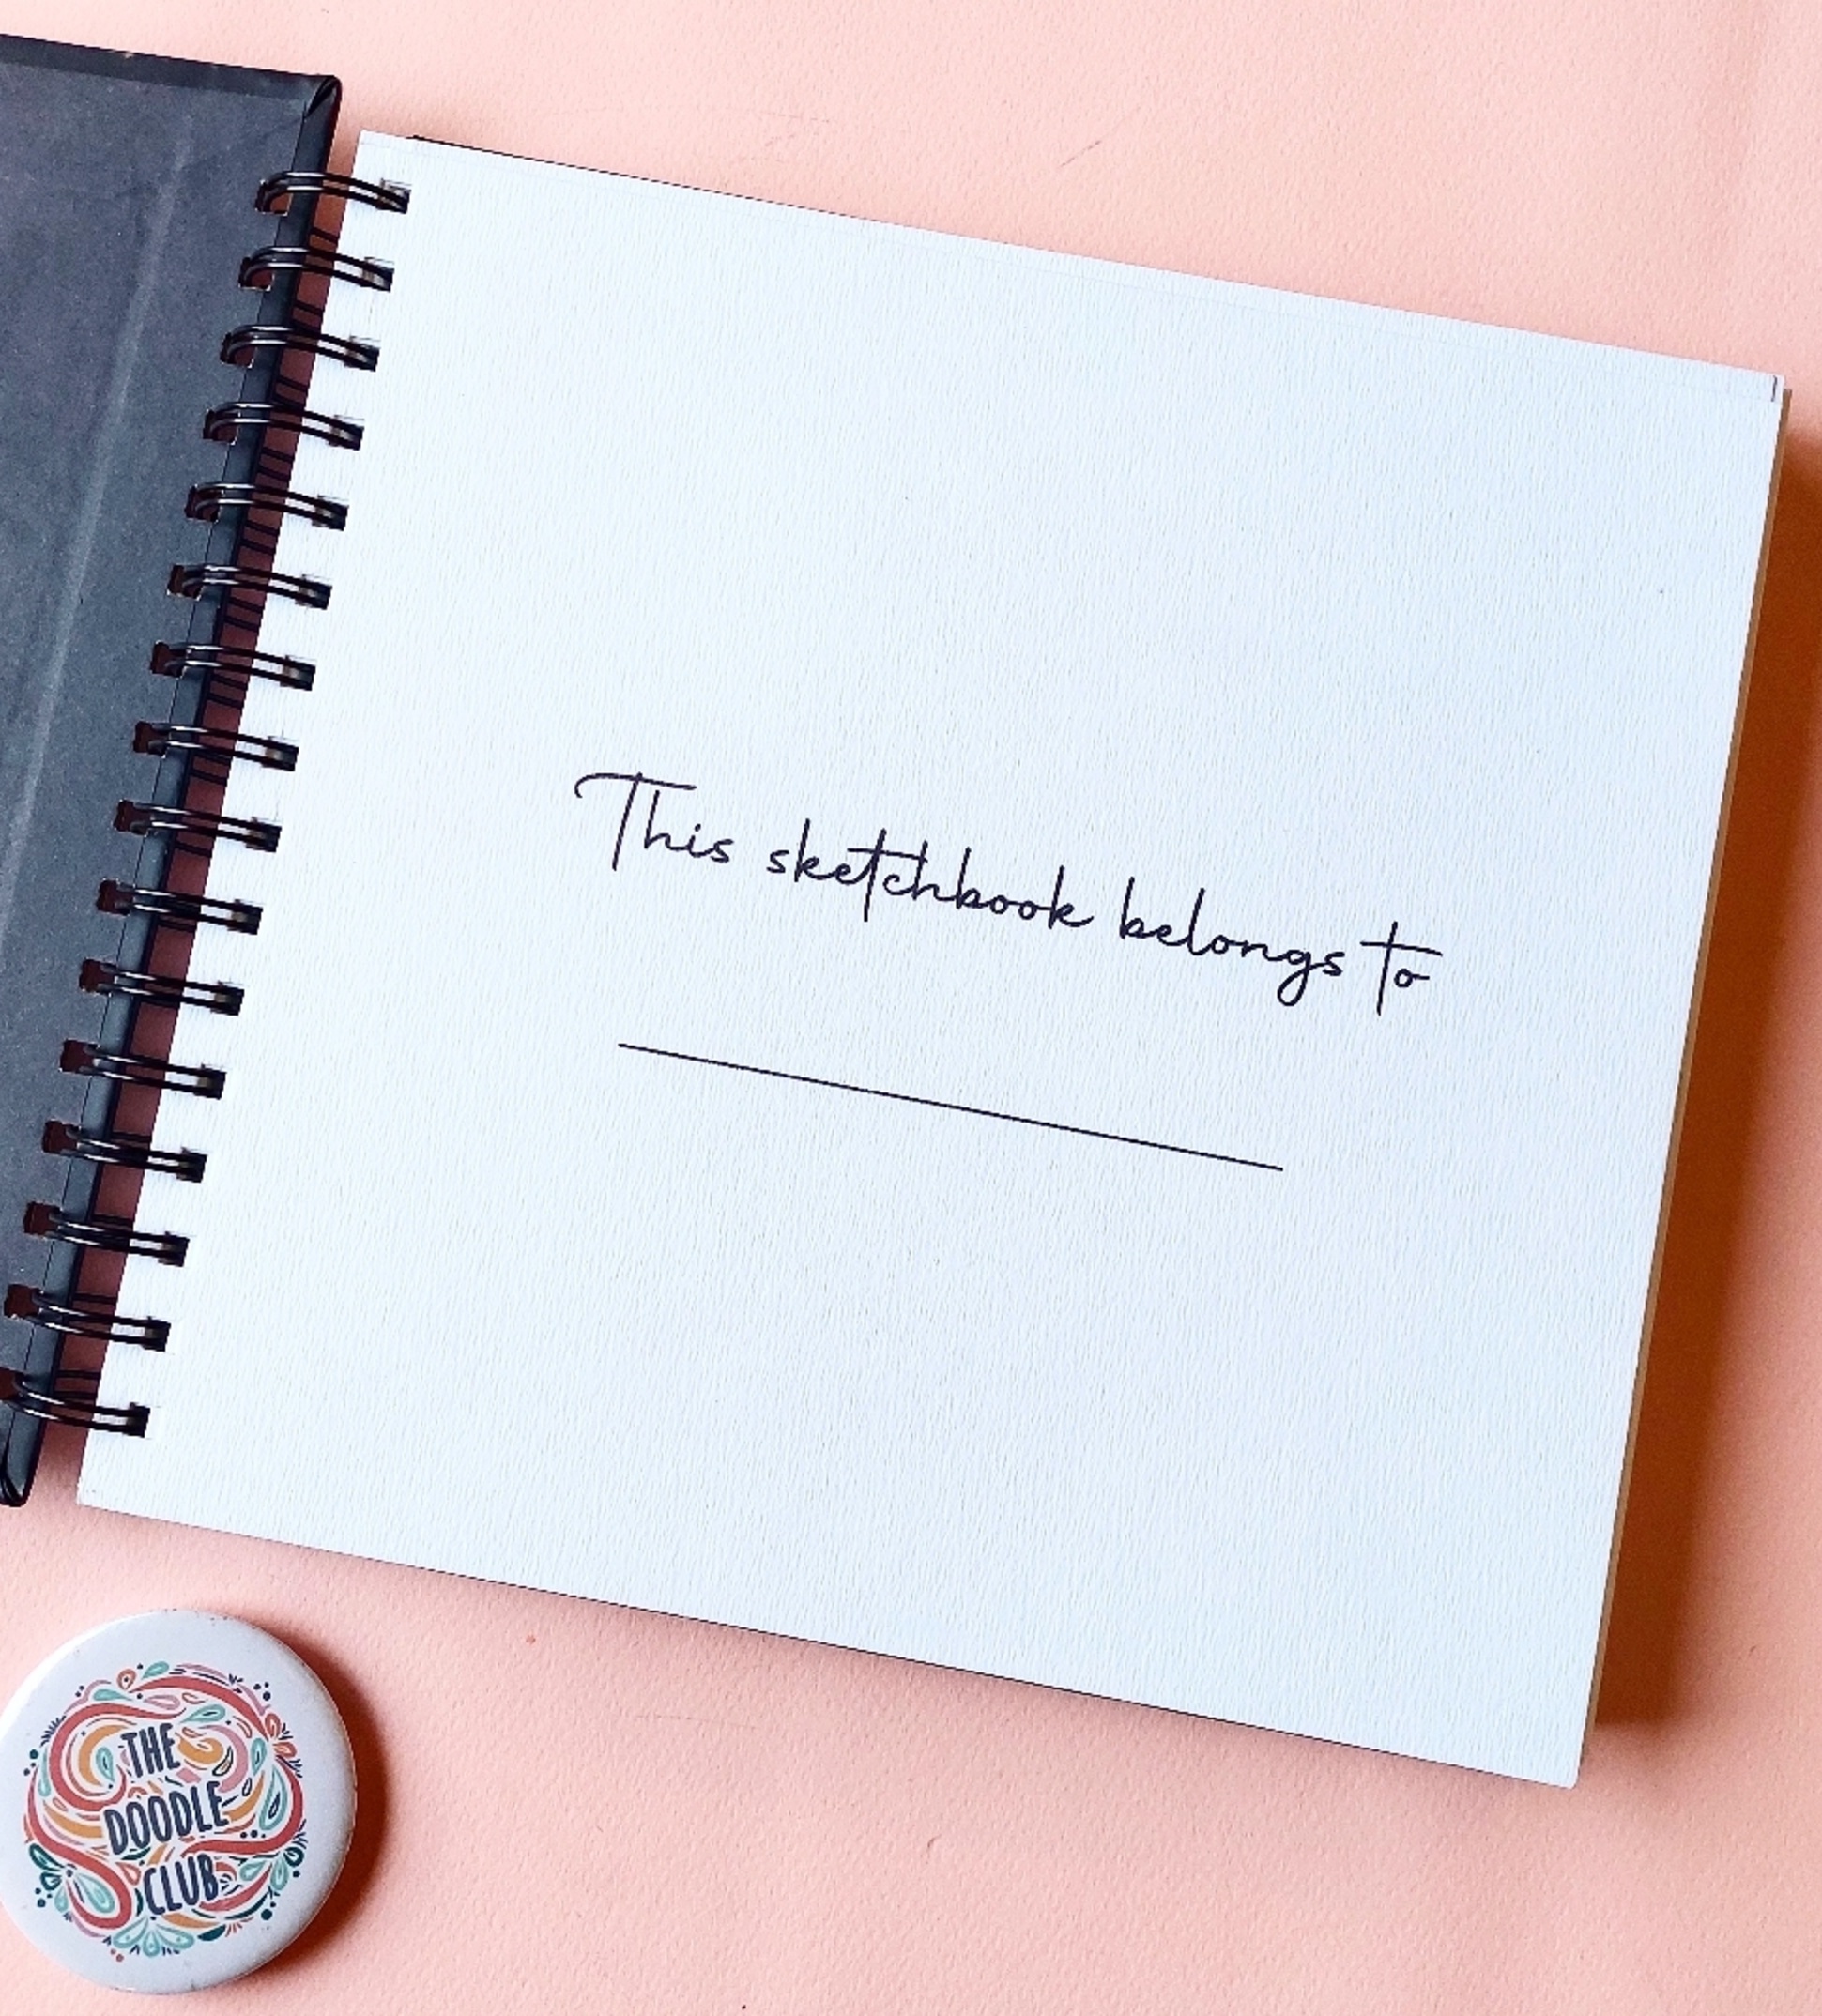 This sketchbook belongs to
THE
DOODLE
CLUB